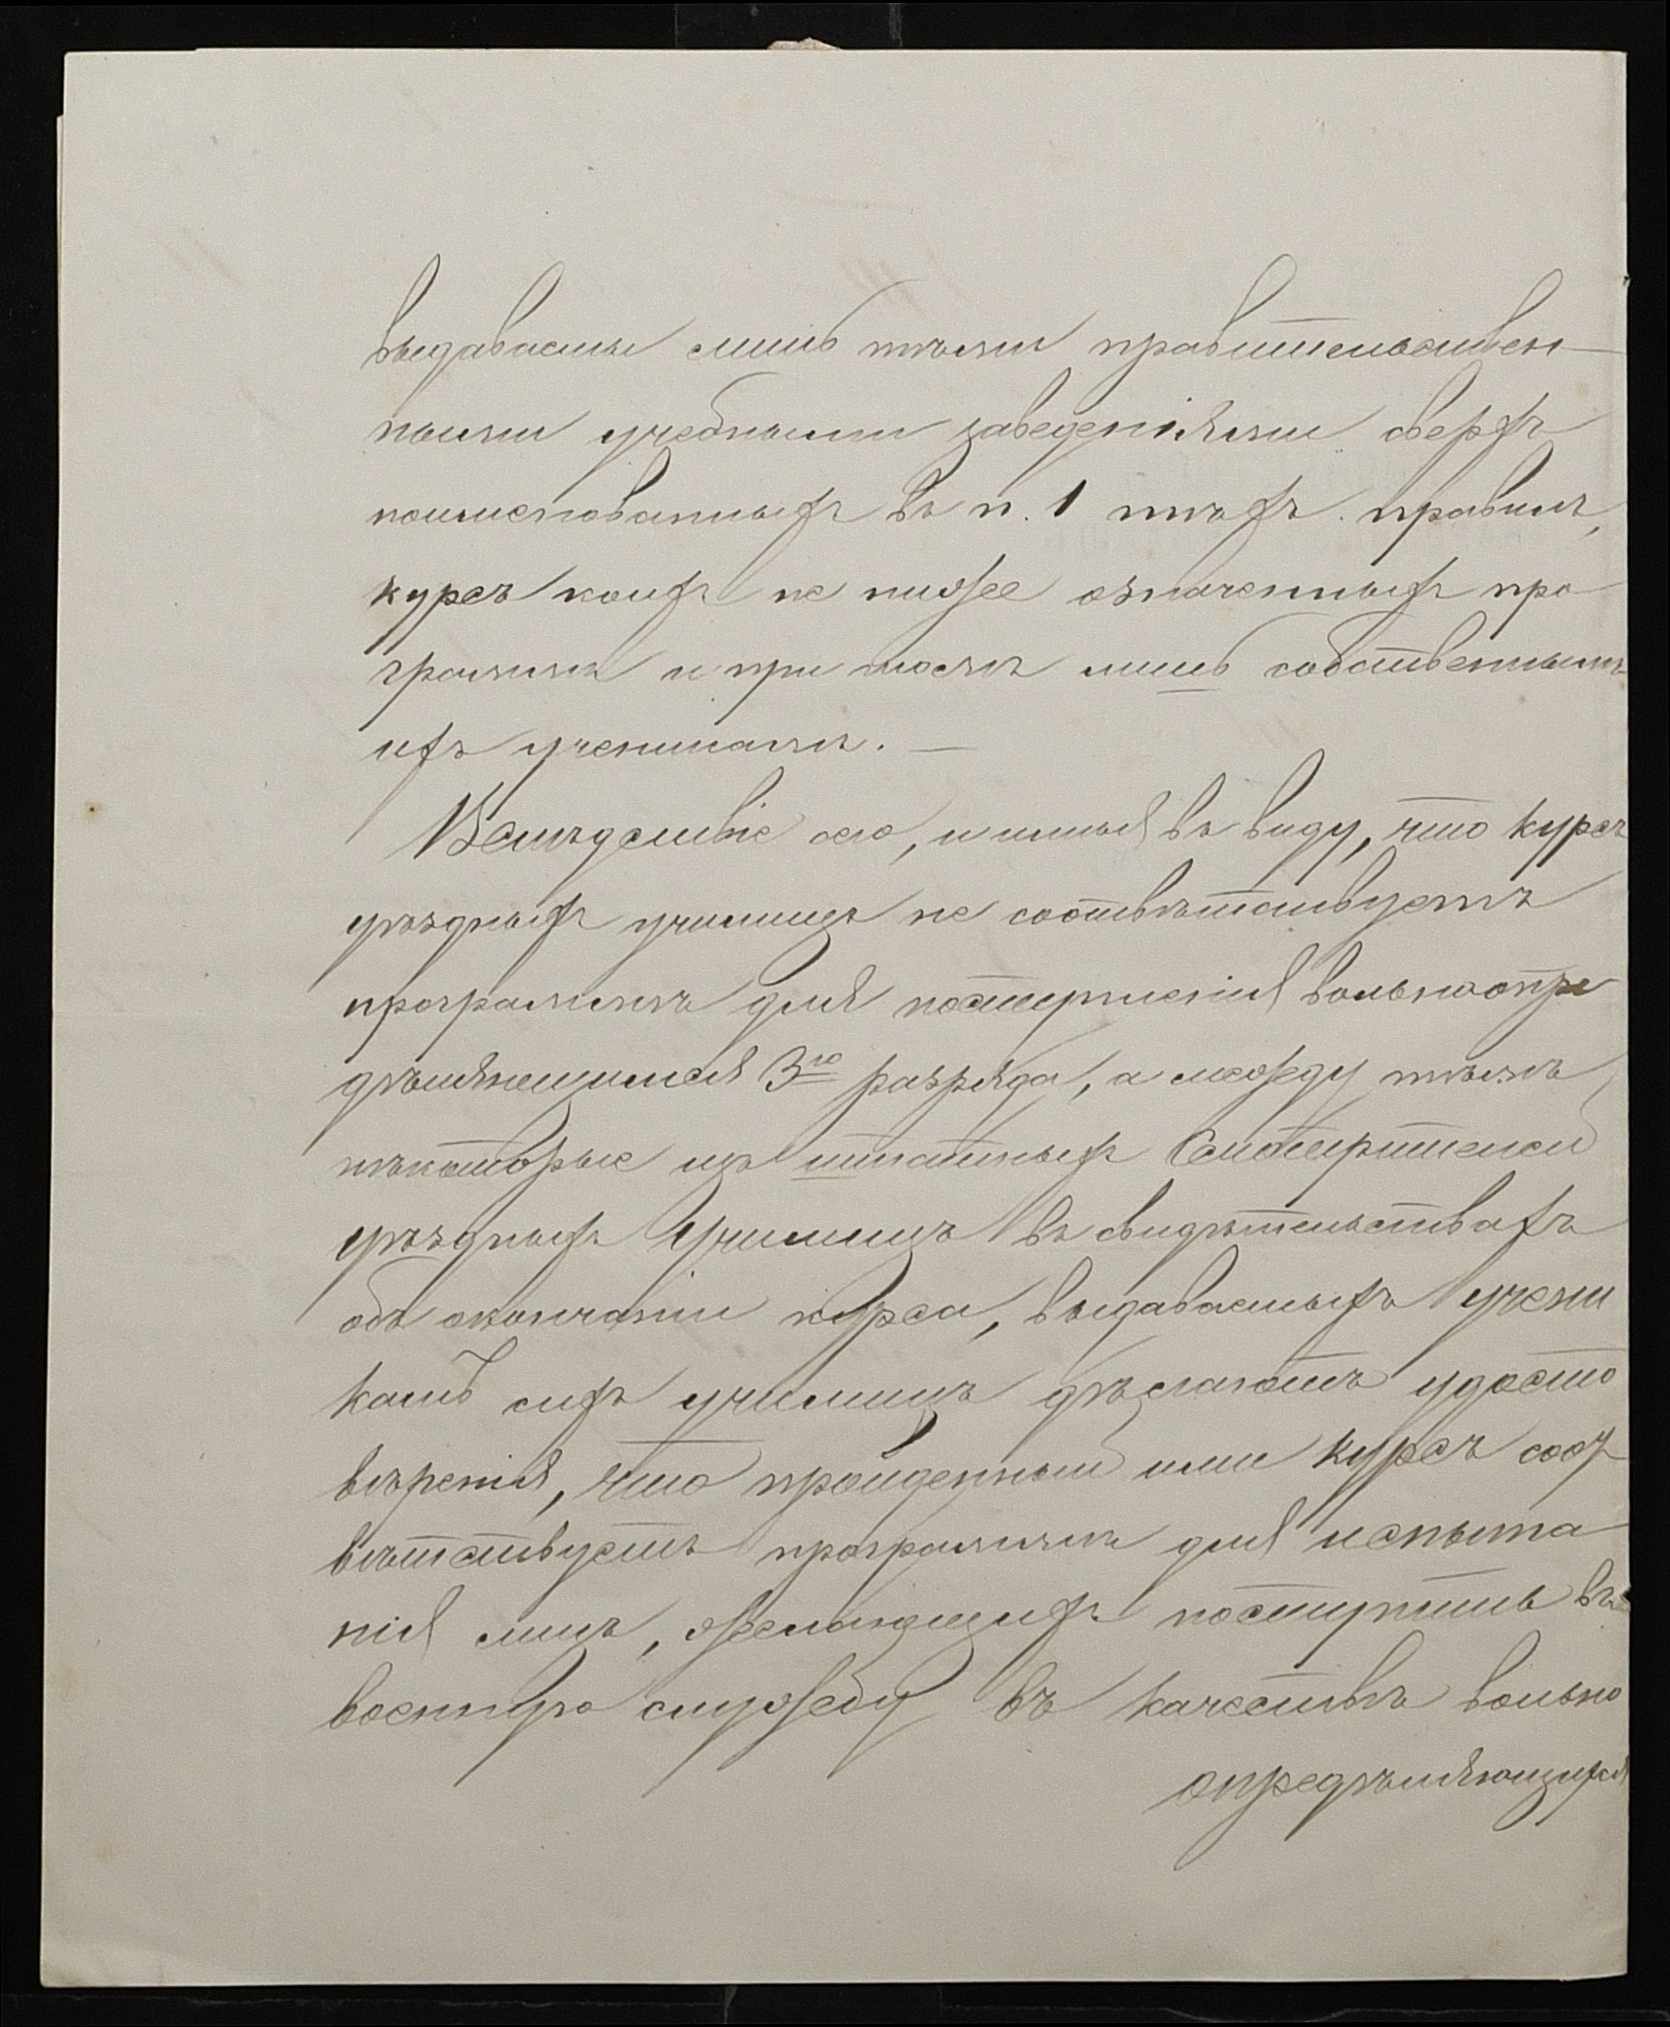 выдаваемы лишь тѣми правительствен-
ными учебными заведеніями сверхъ
поименованныхъ въ п. 1 тѣхъ правилъ,
курсъ коихъ не ниже означенныхъ про
граммъ и при томъ лишь собственнымъ
ихъ ученикамъ. —
Вслѣдствіе сего, и имѣя въ виду, что курсъ
уѣздныхъ училищъ не соотвѣтствуетъ
программѣ для поступленія вольноопре
дѣляющимися 3го разряда, а между тѣмъ
нѣкоторые изъ штатныхъ Смотрителей
уѣздныхъ Училищъ въ свидѣтельствахъ
объ окончаніи курса, выдаваемыхъ учени
камъ сихъ училищъ дѣлаютъ удосто
вѣренія, что пройденный ими курсъ соот
вѣтствуетъ программѣ для испыта
нія лицъ, желающихъ поступить въ
военную службу въ качествѣ вольно
опредѣляющихся